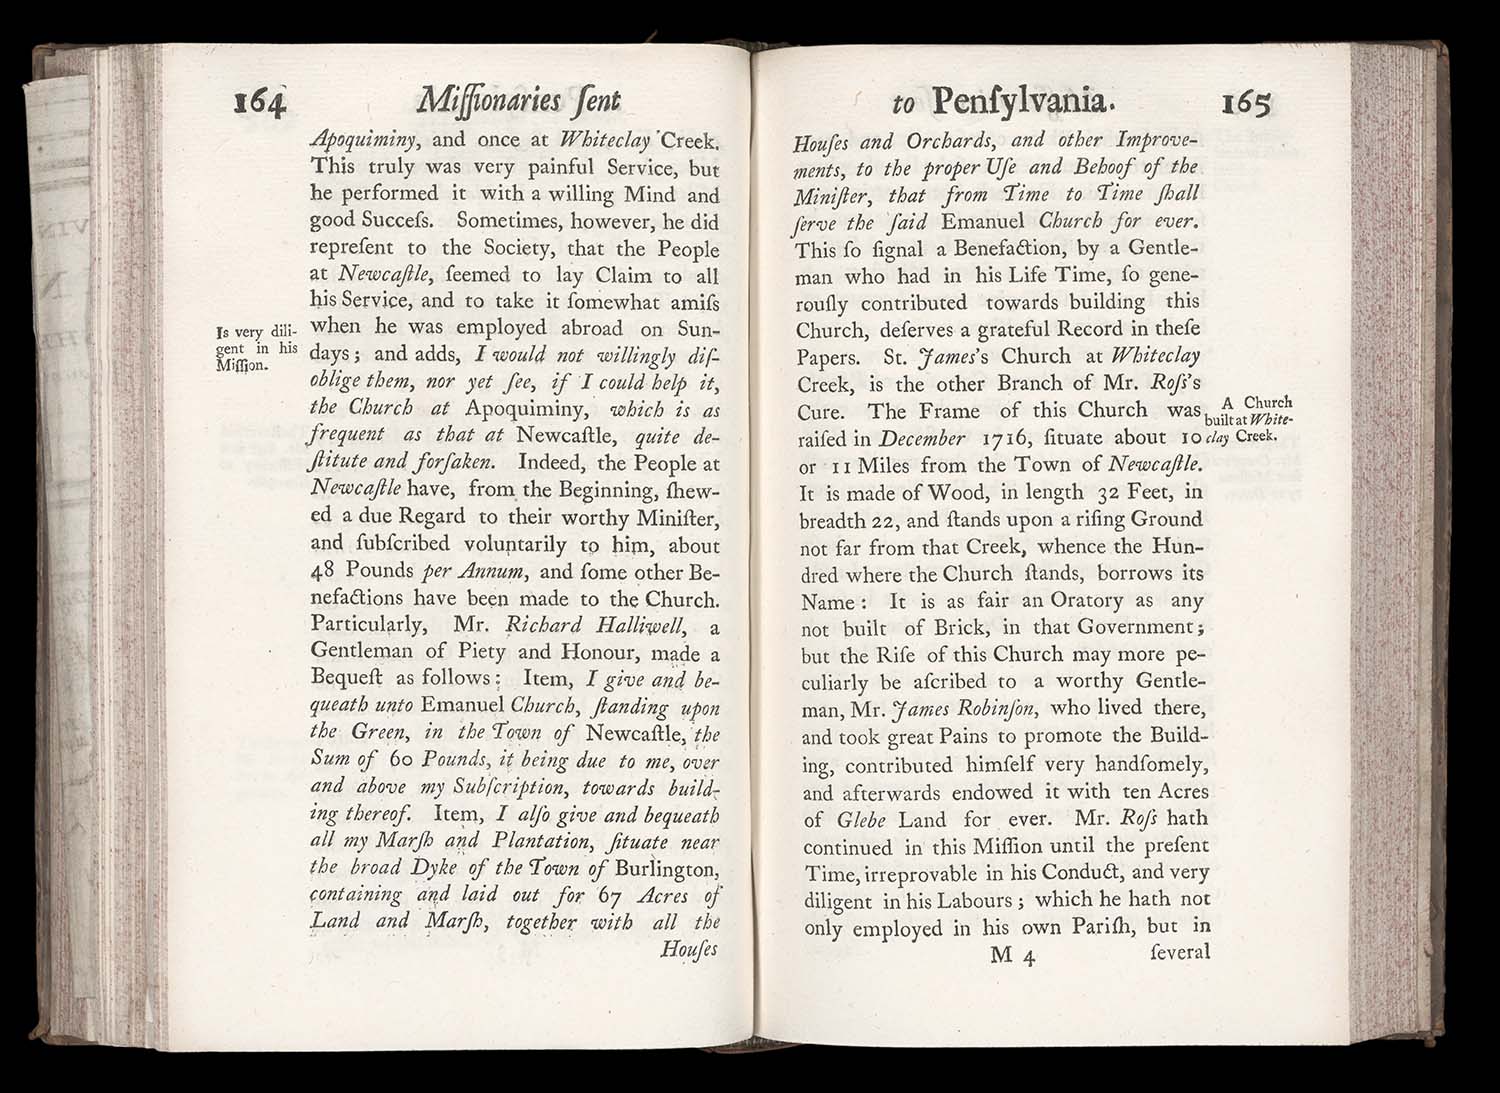 164 Miſſionaries ſent
Apoquiminy, and once at Whiteclay Creek.
This truly was very painful Service, but
he performed it with a willing Mind and
good Succeſs. Sometimes, however, he did
repreſent to the Society, that the People
at Newcaſtle, ſeemed to lay Claim to all
his Service, and to take it ſomewhat amiſs
when he was employed abroad on Sun-
days; and adds, I would not willingly diſ-
oblige them, nor yet ſee, if I could help it,
the Church at Apoquiminy, which is as
frequent as that at Newcaſtle, quite de-
ſtitute and forſaken. Indeed, the People at
Newcaſtle have, from the Beginning, ſhew-
ed a due Regard to their worthy Miniſter,
and ſubſcribed voluntarily to him, about
48 Pounds per Annum, and ſome other Be-
nefactions have been made to the Church.
Particularly, Mr. Richard Halliwell, a
Gentleman of Piety and Honour, made a
Bequeſt as follows: Item, I give and be-
queath unto Emanuel Church, ſtanding upon
the Green, in the Town of Newcaſtle, the
Sum of 60 Pounds, it being due to me, over
and above my Subſcription, towards build-
ing thereof. Item, I alſo give and bequeath
all my Marſh and Plantation, ſituate near
the broad Dyke of the Town of Burlington,
containing and laid out for 67 Acres of
Land and Marſh, together with all the
Houſes
Is very dili-
gent in his
Miſſion.
to Penſylvania. 165
Houſes and Orchards, and other Improve-
ments, to the proper Uſe and Behoof of the
Miniſter, that from Time to Time ſhall
ſerve the ſaid Emanuel Church for ever.
This ſo ſignal a Benefaction, by a Gentle-
man who had in his Life Time, ſo gene-
rouſly contributed towards building this
Church, deſerves a grateful Record in theſe
Papers. St. James's Church at Whiteclay
Creek, is the other Branch of Mr. Roſs's
Cure. The Frame of this Church was
raiſed in December 1716, ſituate about 10
or 11 Miles from the Town of Newcaſtle.
It is made of Wood, in length 32 Feet, in
breadth 22, and ſtands upon a riſing Ground
not far from that Creek, whence the Hun-
dred where the Church ſtands, borrows its
Name: It is as fair an Oratory as any
not built of Brick, in that Government;
but the Riſe of this Church may more pe-
culiarly be aſcribed to a worthy Gentle-
man, Mr. James Robinſon, who lived there,
and took great Pains to promote the Build-
ing, contributed himſelf very handſomely,
and afterwards endowed it with ten Acres
of Glebe Land for ever. Mr. Roſs hath
continued in this Miſſion until the preſent
Time, irreprovable in his Conduct, and very
diligent in his Labours; which he hath not
only employed in his own Pariſh, but in
M 4 ſeveral
A Church
built at White-
clay Creek.